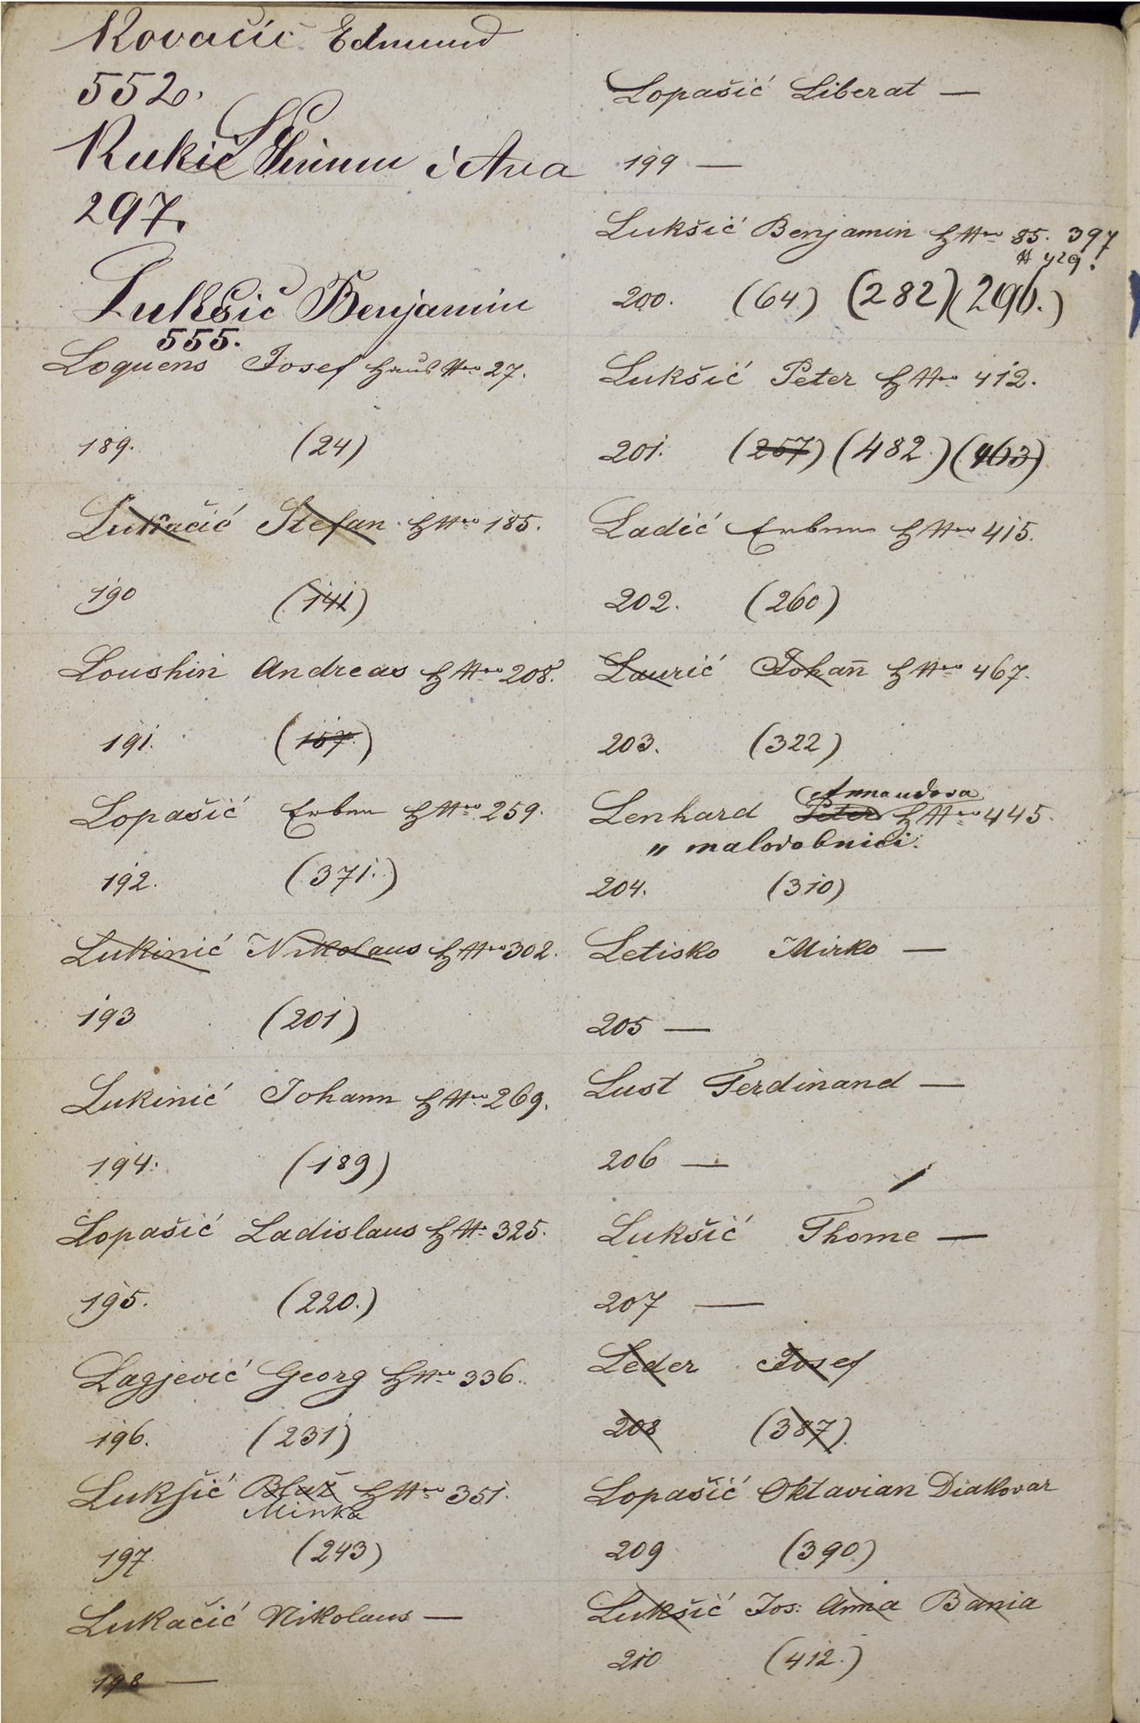 Kovačić Edmund
552.
Kukić i Ana
297.
Lukšić Benjamin
555.
Loquens Josef Haus Nro 27.
189. (24)
Lukačić Stefan HNro 185.
190 (141)
Loushin Andreas HNro 208.
191. (157.)
Lopašić Erben HNro 259.
192. (371.)
Lukinić Nikolaus HNro 302.
193 (201)
Lukinić Johann HNro 269.
194. (189)
Lopašić Ladislaus HN 325.
195. (220.)
Lagjević Georg HNro 336.
196. (231)
Lukšić Blaž HNro 351.
Minka
197 (243)
Lukačić Nikolaus —
198 —
Lopašić Liberat —
199 —
Lukšić Benjamin HNro 85. 397
N 429.
200. (64) (282) (296.)
Lukšić Peter HNro 412.
201. (257) (482.) (463)
Ladić Erben HNro 415.
202. (260)
Laurić Johan̄ HNro 467.
203. (322)
Lenhard Peter HNro 445.
" malodobnici.
204. (310)
Letisko Mirko —
205 —
Lust Ferdinand —
206 —
Lukšić Thome —
207 —
Leder Josef
208 (387)
Lopašić Oktavian Diakovar
209 (390)
Lukšić Jos: Anna Bania
210 (412.)